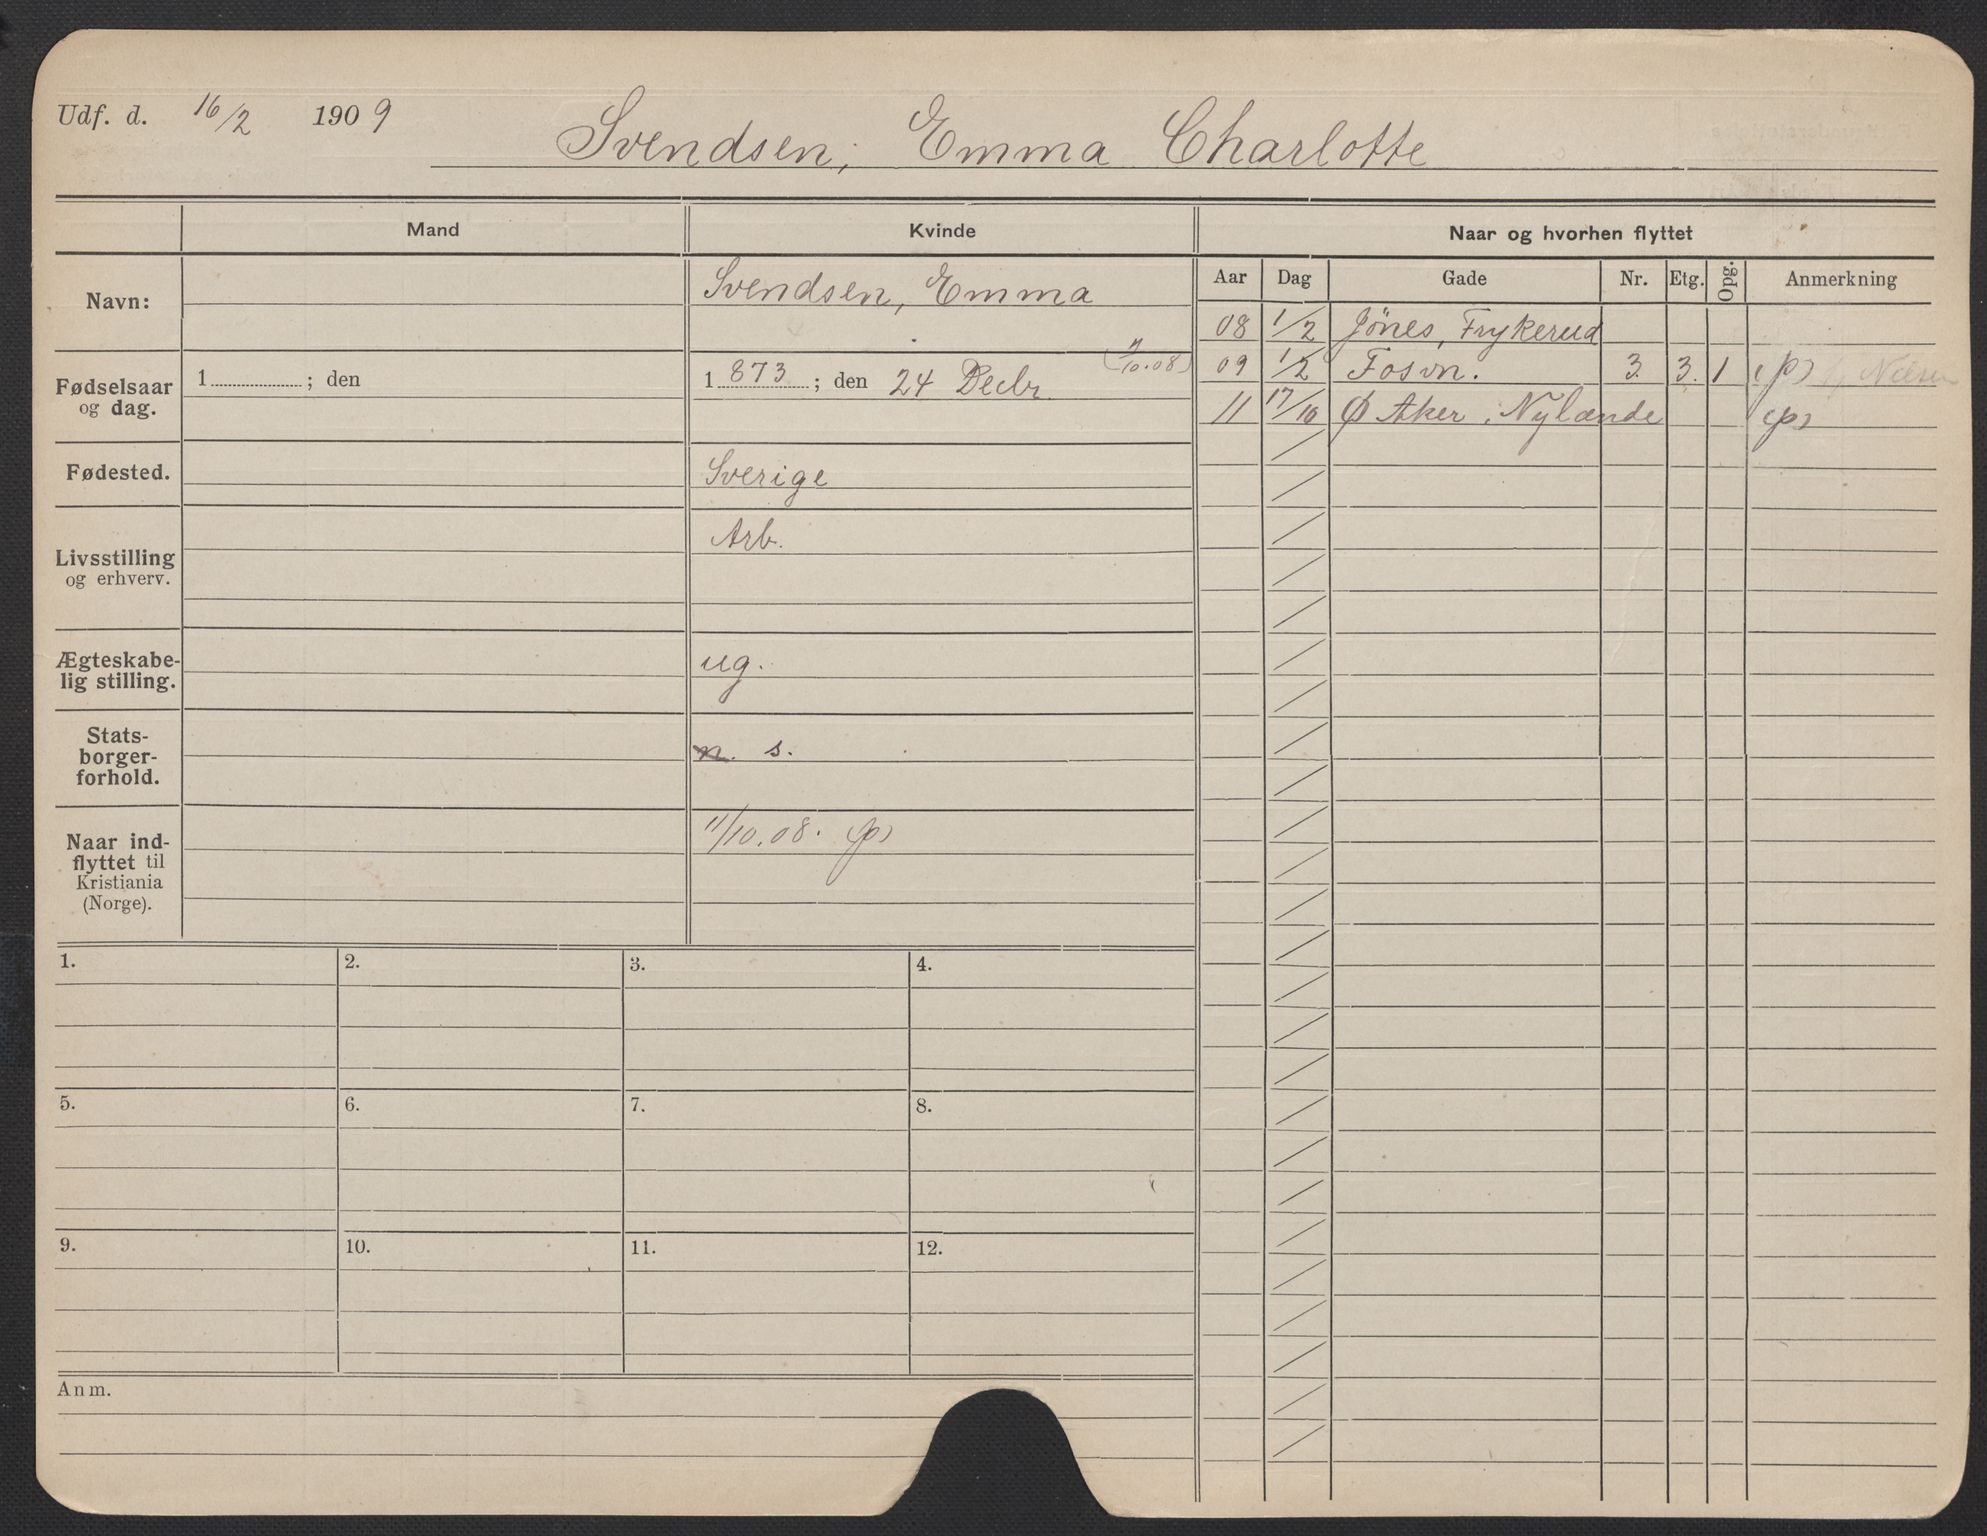 Udf. d. 16/2 1909
Svendsen, Emma Charlotte
Mand
Kvinde
Naar og hvorhen flyttet
Navn:
Svendsen, Emma
Aar Dag Gade Nr. Etg. Opg. Anmerkning
08 1/2 Jönes, Frykerud
09 1/2 Fosvn. 3. 3. 1 (p)
11 17/10 Ø Aker, Nylænde (p)
Fødselsaar
og dag.
1 ; den
1 873 ; den 24 Decbr
Fødested.
Sverige
Livsstilling
og erhverv.
Arb.
Ægteskabe-
lig stilling.
ug.
Stats-
borger-
forhold.
n. s.
Naar ind-
flyttet til
Kristiania
(Norge).
11/10.08. (p)
1. 2. 3. 4.
5. 6. 7. 8.
9. 10. 11. 12.
Anm.